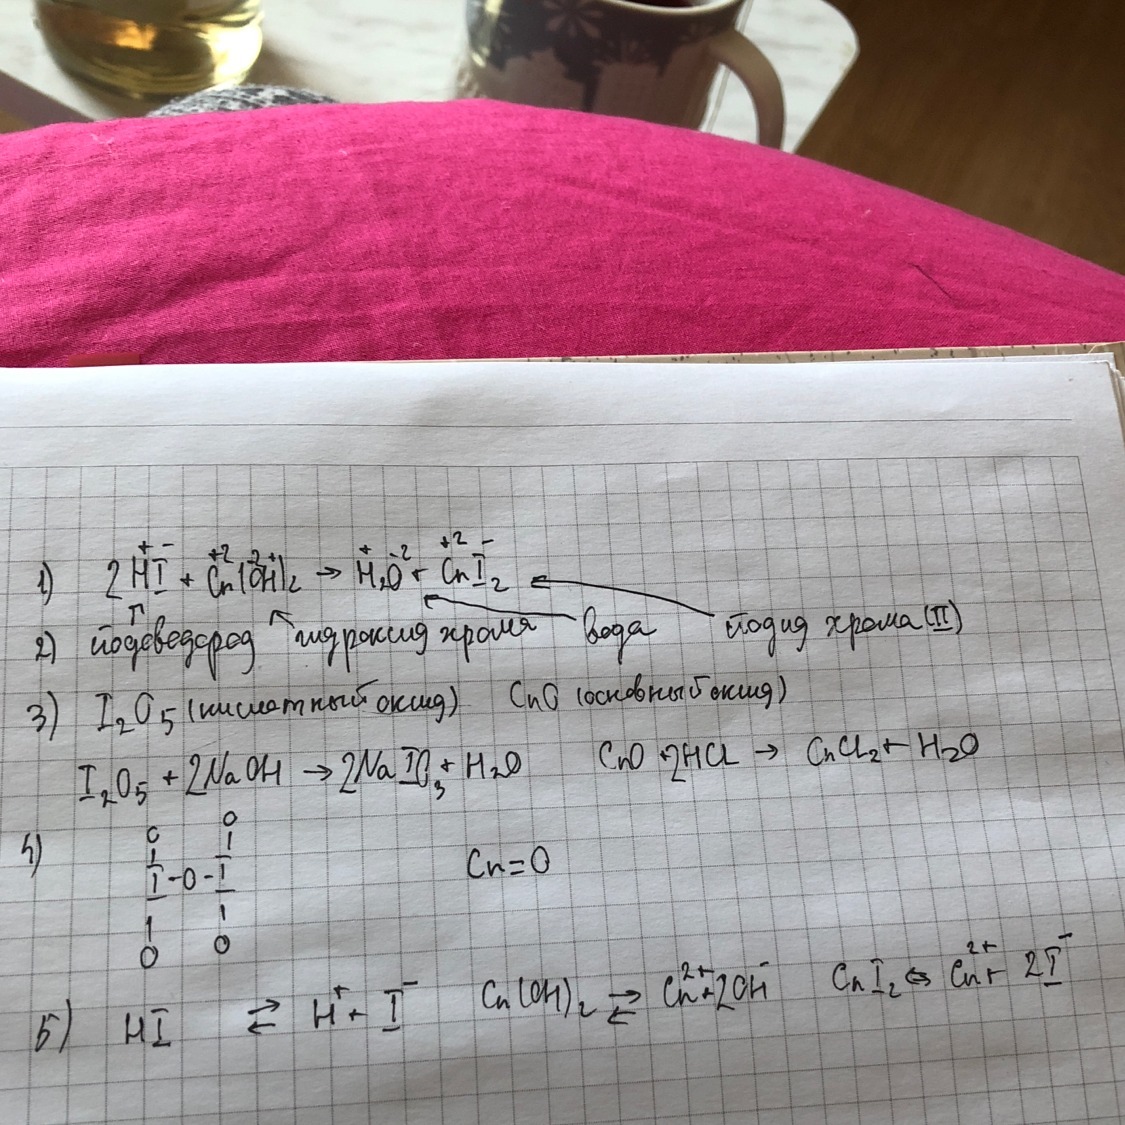 1) 2HI + Cn(OH)₂ → H₂O + CnI₂
+ - +2 -2 + + -2 +2 -
2) йодоводород гидроксид хрома вода йодид хрома (II)
3) I₂O₅ (кислотный оксид) CnO (основный оксид)
I₂O₅ + 2NaOH → 2NaIO₃ + H₂O CnO + 2HCl → CnCl₂ + H₂O
4) O O
I - O - I Cn = O
O O
5) HI ⇄ H⁺ + I⁻ Cn(OH)₂ ⇄ Cn²⁺ + 2OH⁻ CnI₂ ⇔ Cn²⁺ + 2I⁻